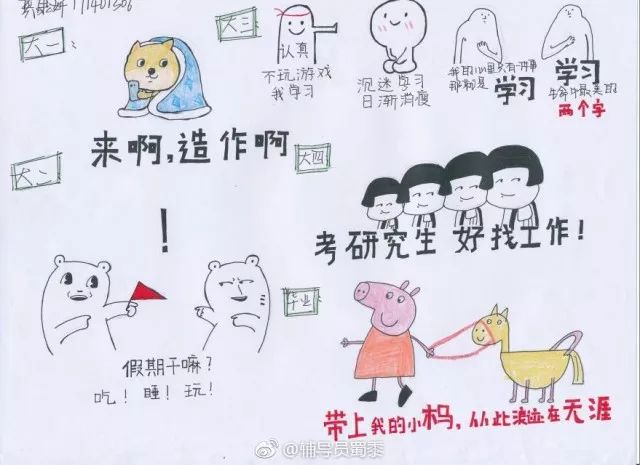 大一
来啊,造作啊
大二
!
假期干嘛?
吃!睡!玩!
大三
认真
不玩游戏
我学习
沉迷学习
日渐消瘦
我的心里只有一件事
那就是 学习
学习
生命中最美的
两个字
大四
考研究生 好找工作!
毕业
带上我的小杩,从此浪迹在天涯
@辅导员蜀黍